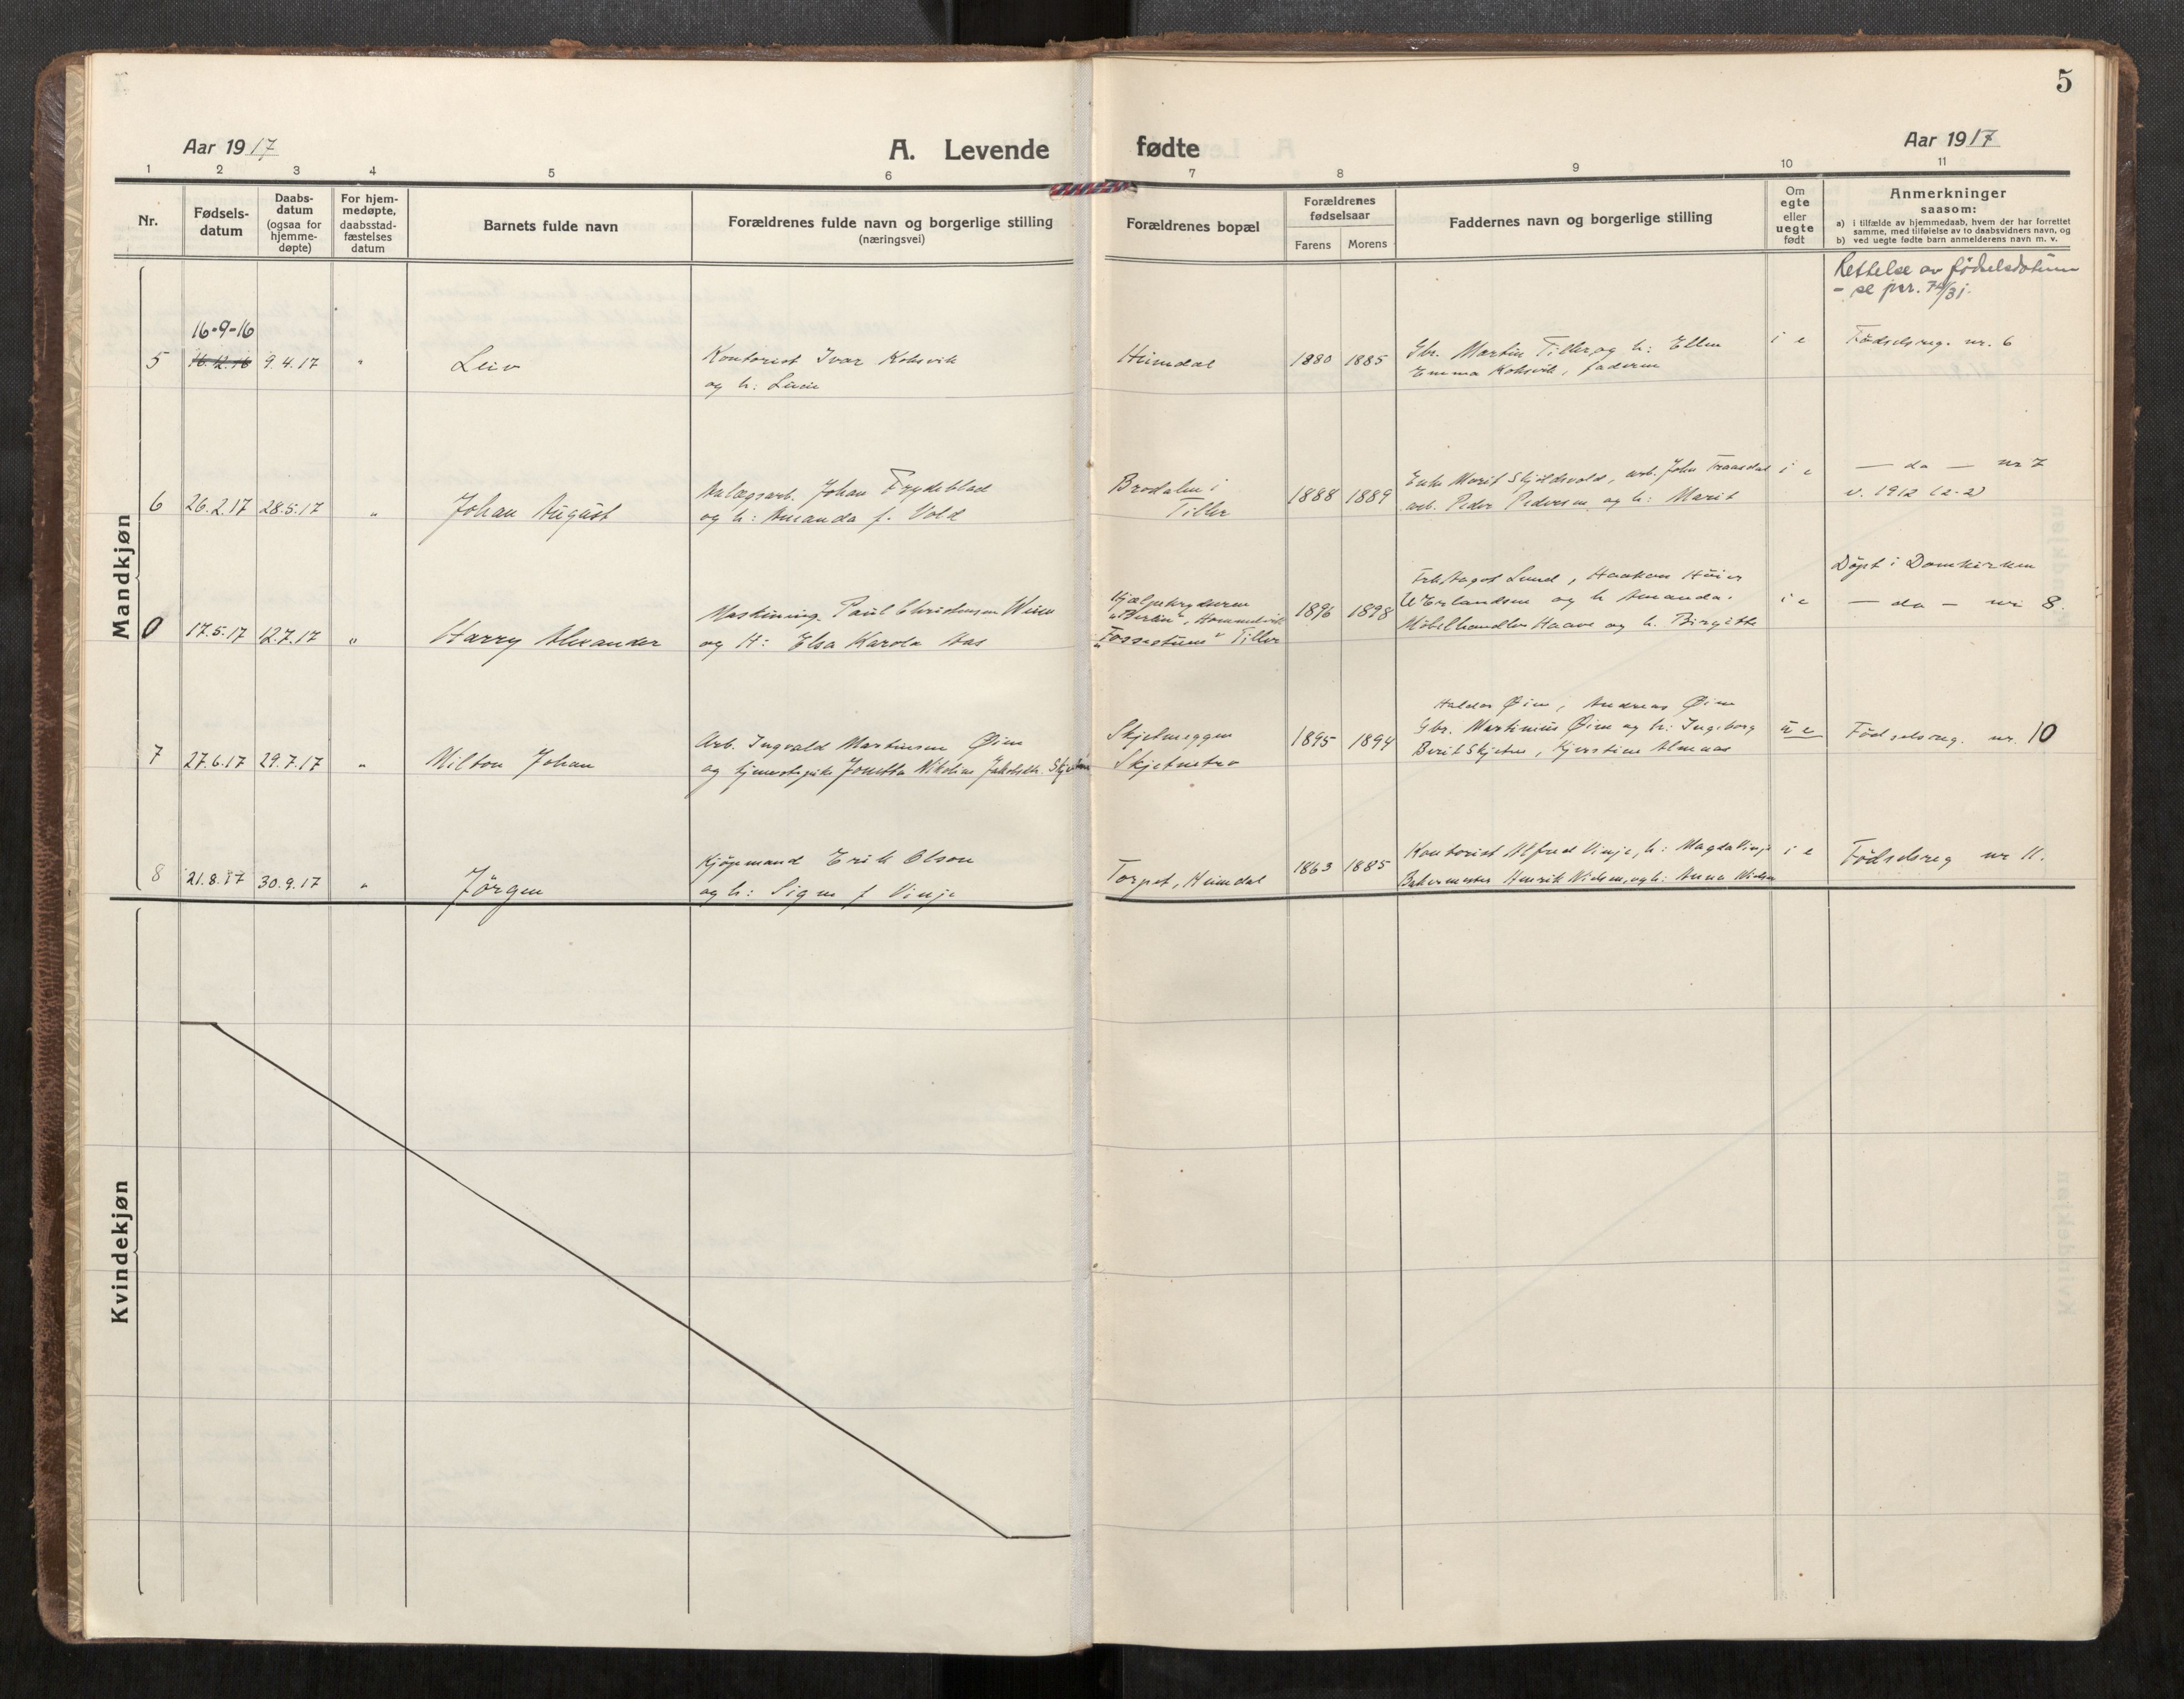 5
Aar 1917
A. Levende fødte
Aar 1917
1 2 3 4 5 6 7 8 9 10 11
Nr.
Fødsels-
datum
Daabs-
datum
(ogsaa for
hjemme-
døpte)
For hjem-
medøpte,
daabsstad-
fæstelses
datum
Barnets fulde navn
Forældrenes fulde navn og borgerlige stilling
(næringsvei)
Forældrenes bopæl
Forældrenes
fødselsaar
Farens Morens
Faddernes navn og borgerlige stilling
Om
egte
eller
uegte
født
Anmerkninger
saasom:
a) i tilfælde av hjemmedaab, hvem der har forrettet
samme, med tilføielse av to daabsvidners navn, og
b) ved uegte fødte barn anmelderens navn m. v.
Mandkjøn
Rettelse av fødselsdatum
- se jnr. 74/31.
16-9-16
5 16.12.16 9.4.17 " Leiv
Kontorist Ivar Kolsvik
og h:
Heimdal
1880 1885
Gbr. Martin Tiller og h: Ellen
Emma Kolsvik, faderen
i e
Fødselsreg. nr. 6
6 26.2.17 28.5.17 " Johan August
Anlægsarb. Johan Frydeblad
og h: Amanda f. Vold
Brodalen i
Tiller
1888 1889
Enke Marit Skjöldsvold, arb. John
arb. Peder Pedersen og h: Marit
i e
— do — nr 7
v. 1912 (2-2)
Døpt i Domkirken
0 17.5.17 12.7.17 " Harry Alexander
Maskining. Paul Christensen
og H: Elsa Karola Aas
"Berlin", Hommelvik
"Fossestuen" Tiller
1896 1898
Frk Aagot Lund, Haakon
Erlandsen og h Amanda.
Møbelhandler Haave og h. Birgitte
i e
— do — nr 8.
7 27.6.17 29.7.17 " Milton Johan
Arb. Ingvald Martinsen Øien
og tjenestepike Jonetta Nikoline Jakobsdtr. Skjetne
Skjetneggen
Skjetnetrø
1895 1894
Haldor Øien, Andreas Øien
Gbr. Martinius Øien og h: Ingeborg
Berit Skjetne, Kjerstine Almaas
u e
Fødselsreg. nr. 10
8 21.8.17 30.9.17 " Jørgen
Kjøpmand Erik Olson
og h: Signe f Vinje
Torpet, Heimdal
1863 1885
Kontorist Alfred Vinje, h: Magda Vinje
Bakermester Henrik Nielsen, og h: Anna Nielsen
i e
Fødselsreg nr 11.
Kvindekjøn